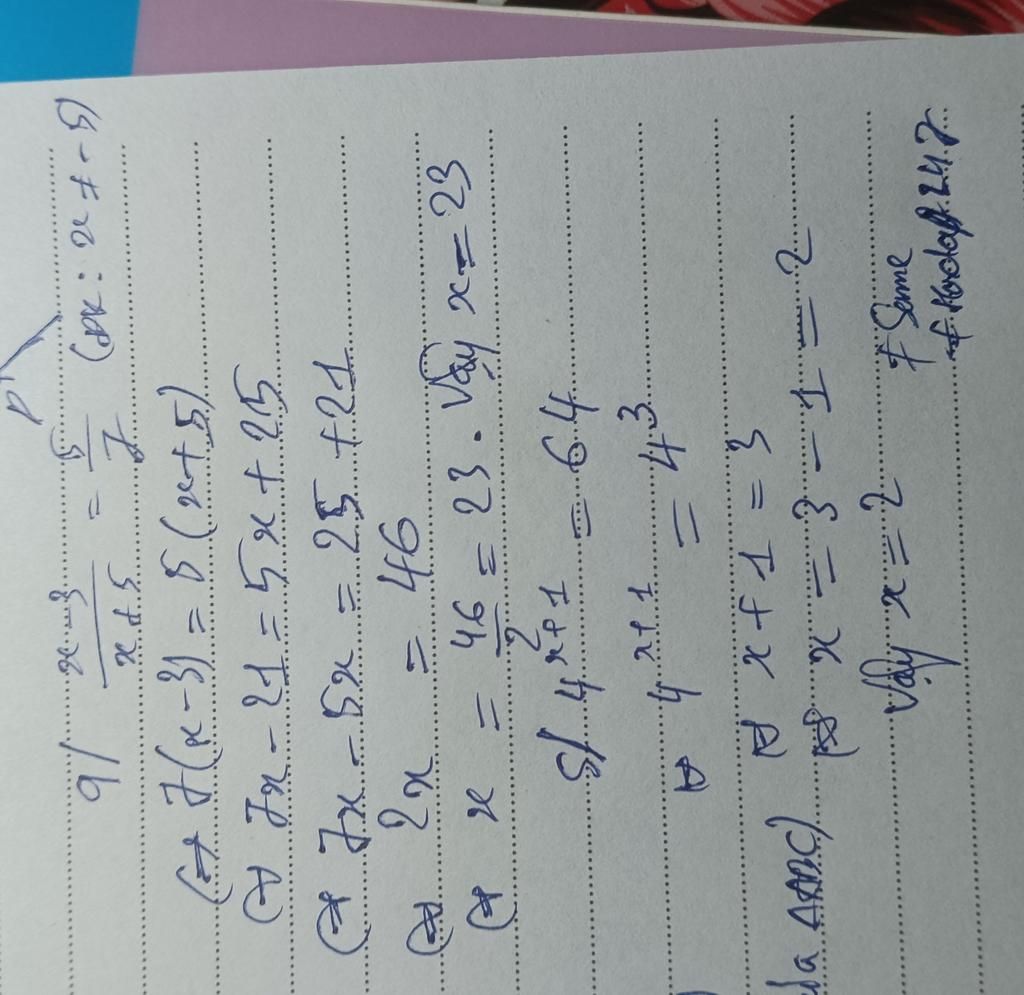 P
9/ x-3/x+5 = 5/7 (đk: x ≠ -5)
⇔ 7(x-3) = 5(x+5)
⇔ 7x - 21 = 5x + 25
⇔ 7x - 5x = 25 + 21
⇔ 2x = 46
⇔ x = 46/2 = 23. Vậy x = 23
5/ 4^x+1 = 64
⇔ 4^x+1 = 4^3
⇔ x + 1 = 3
⇔ x = 3 - 1 = 2
Vậy x = 2
của ΔABC)